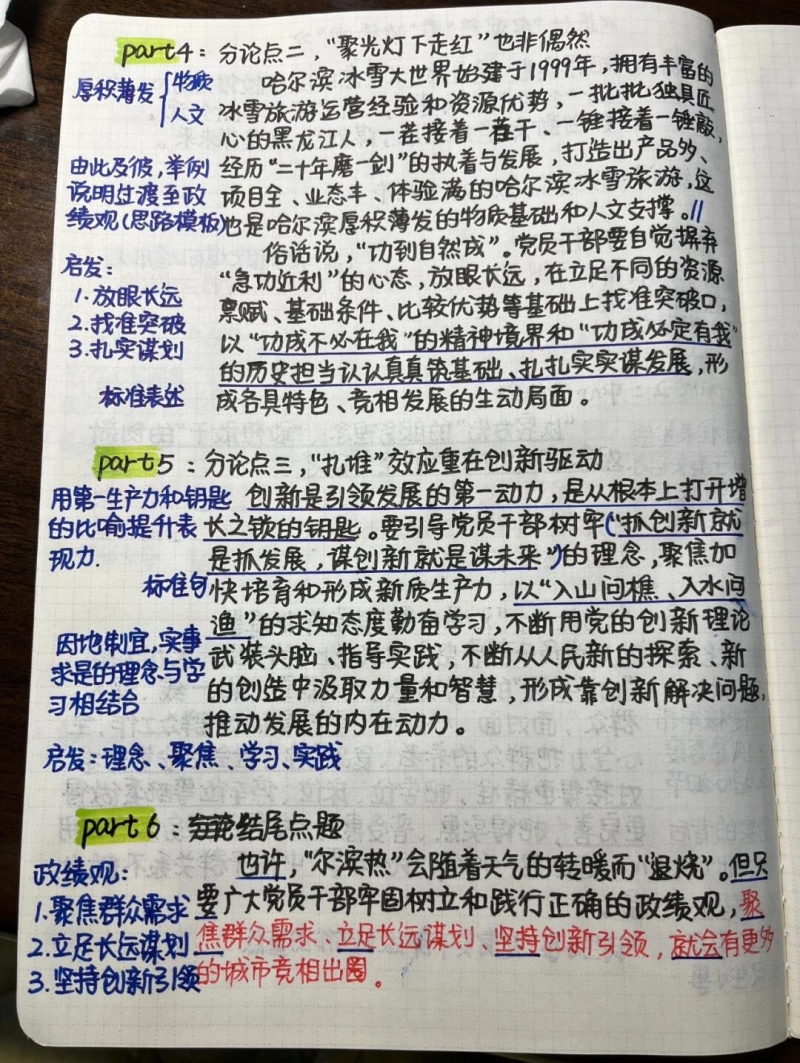 part4：分论点二，“聚光灯下走红”也非偶然
厚积薄发 物质 人文
哈尔滨冰雪大世界始建于1999年，拥有丰富的
冰雪旅游运营经验和资源优势，一批批独具匠
心的黑龙江人，一茬接着一茬干、一锤接着一锤敲，
由此及彼，举例
说明过渡至政
绩观（思路模板）
经历“二十年磨一剑”的执着与发展，打造出产品多、
项目全、业态丰、体验满的哈尔滨冰雪旅游，这
也是哈尔滨厚积薄发的物质基础和人文支撑。//
启发：
1.放眼长远
2.找准突破
3.扎实谋划
标准表述
俗话说，“功到自然成”。党员干部要自觉摒弃
“急功近利”的心态，放眼长远，在立足不同的资源
禀赋、基础条件、比较优势等基础上找准突破口，
以“功成不必在我”的精神境界和“功成必定有我”
的历史担当认认真真筑基础、扎扎实实谋发展，形
成各具特色、竞相发展的生动局面。
part5：分论点三，“扎堆”效应重在创新驱动
用第一生产力和钥匙
的比喻提升表
现力.
标准句
因地制宜，实事
求是的理念与学
习相结合
启发：理念、聚焦、学习、实践
创新是引领发展的第一动力，是从根本上打开增
长之锁的钥匙。要引导党员干部树牢“抓创新就
是抓发展，谋创新就是谋未来”的理念，聚焦加
快培育和形成新质生产力，以“入山问樵、入水问
渔”的求知态度勤奋学习，不断用党的创新理论
武装头脑、指导实践，不断从人民新的探索、新
的创造中汲取力量和智慧，形成靠创新解决问题，
推动发展的内在动力。
part6：结尾点题
政绩观：
1.聚焦群众需求
2.立足长远谋划
3.坚持创新引领
也许，“尔滨热”会随着天气的转暖而“退烧”。但只
要广大党员干部牢固树立和践行正确的政绩观，聚
焦群众需求、立足长远谋划、坚持创新引领，就会有更多
的城市竞相出圈。